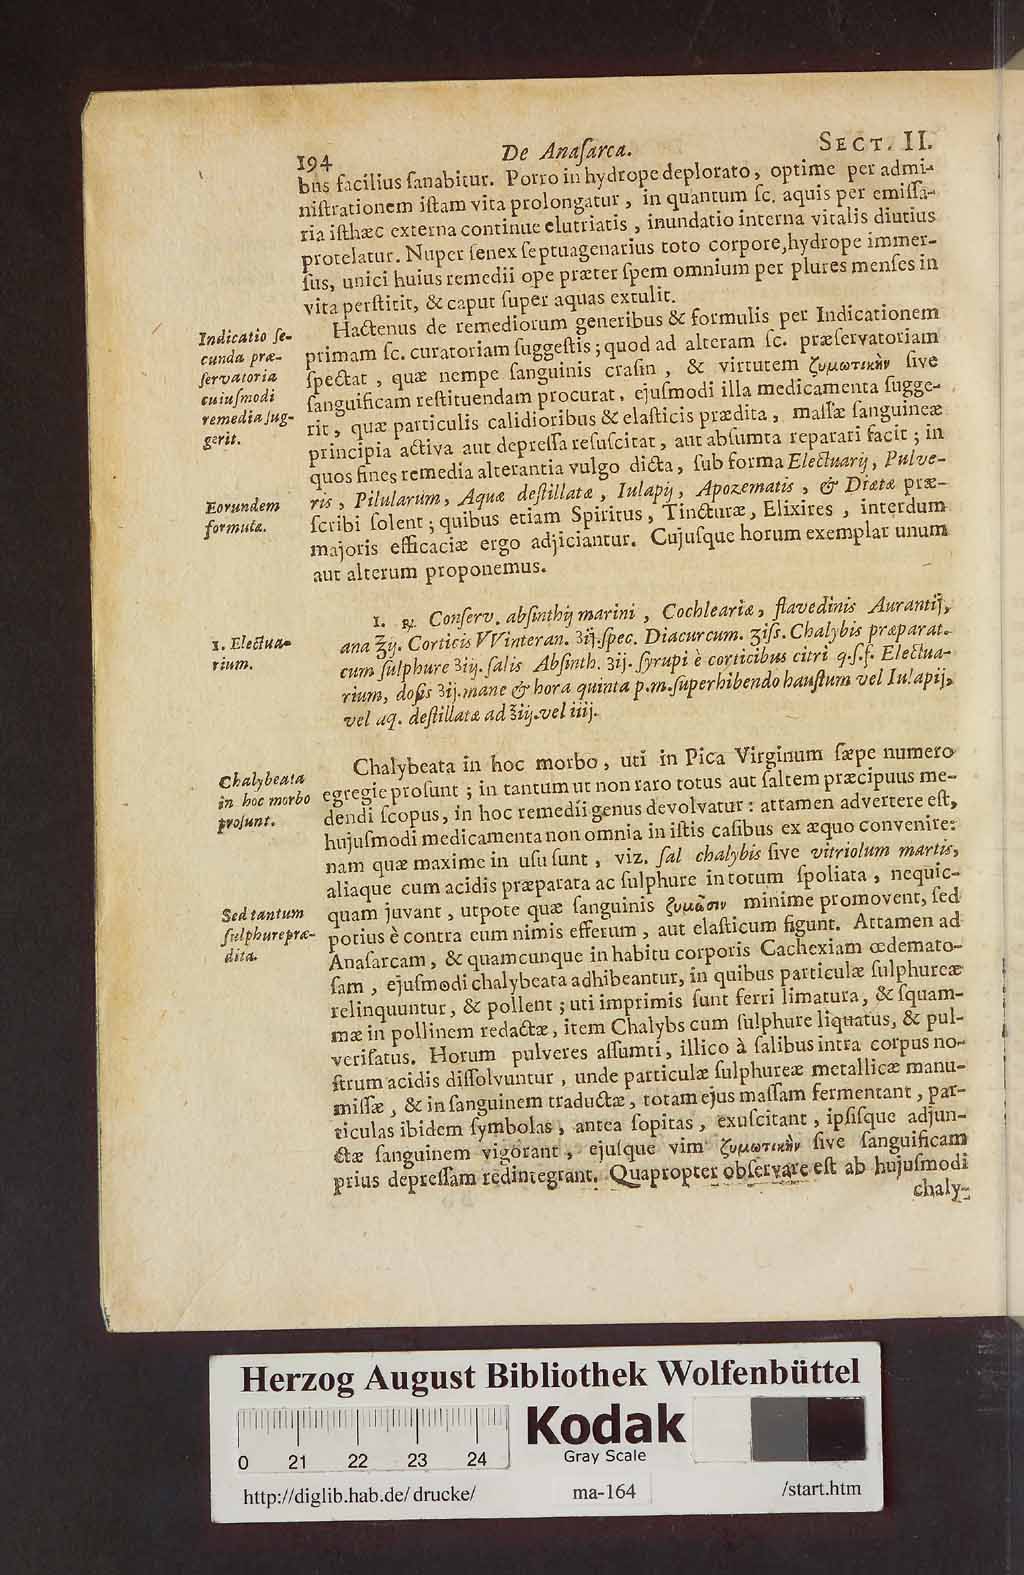 194 De Anaſarca. SECT. II.
bus facilius ſanabitur. Porro in hydrope deplorato, optime per admi-
niſtrationem iſtam vita prolongatur, in quantum ſc. aquis per emiſſa-
ria iſthæc externa continue elutriatis, inundatio interna vitalis diutius
protelatur. Nuper ſenex ſeptuagenarius toto corpore, hydrope immer-
ſus, unici huius remedii ope præter ſpem omnium per plures menſes in
vita perſtitit, & caput ſuper aquas extulit.
Indicatio ſe-
cunda præ-
ſervatoria
cuiuſmodi
remedia ſug-
gerit.
Hactenus de remediorum generibus & formulis per Indicationem
primam ſc. curatoriam ſuggeſtis; quod ad alteram ſc. præſervatoriam
ſpectat, quæ nempe ſanguinis craſin, & virtutem ζυμωτικὴν ſive
ſanguificam reſtituendam procurat, ejuſmodi illa medicamenta ſugge-
rit, quæ particulis calidioribus & elaſticis prædita, maſſæ ſanguineæ
principia activa aut depreſſa reſuſcitat, aut abſumta reparari facit; in
quos fines remedia alterantia vulgo dicta, ſub forma Electuarij, Pulve-
Eorundem
formulæ.
ris, Pilularum, Aquæ deſtillatæ, Iulapij, Apozematis, & Diætæ præ-
ſcribi ſolent; quibus etiam Spiritus, Tincturæ, Elixires, interdum
majoris efficaciæ ergo adjiciantur. Cujuſque horum exemplar unum
aut alterum proponemus.
1. Electua-
rium.
1. ℞. Conſerv. abſinthij marini, Cochleariæ, flavedinis Aurantij,
ana ℥ij. Corticis VVinteran. ʒij. ſpec. Diacurcum. ʒiſſ. Chalybis præparat.
cum ſulphure ʒiij. ſalis Abſinth. ʒij. ſyrupi è corticibus citri q. ſ. f. Electua-
rium, doſis ʒij. mane & hora quinta p. m. ſuperbibendo hauſtum vel Iulapij,
vel aq. deſtillatæ ad ℥iij. vel iiij.
Chalybeata
in hoc morbo
proſunt.
Chalybeata in hoc morbo, uti in Pica Virginum ſæpe numero
egregie proſunt; in tantum ut non raro totus aut ſaltem præcipuus me-
dendi ſcopus, in hoc remedii genus devolvatur: attamen advertere eſt,
hujuſmodi medicamenta non omnia in iſtis caſibus ex æquo convenire:
nam quæ maxime in uſu ſunt, viz. ſal chalybis ſive vitriolum martis,
aliaque cum acidis præparata ac ſulphure in totum ſpoliata, nequic-
Sed tantum
ſulphure præ-
dita.
quam juvant, utpote quæ ſanguinis ζυμῶσιν minime promovent, ſed
potius è contra eum nimis efferum, aut elaſticum figunt. Attamen ad
Anaſarcam, & quamcunque in habitu corporis Cachexiam œdemato-
ſam, ejuſmodi chalybeata adhibeantur, in quibus particulæ ſulphureæ
relinquuntur, & pollent; uti imprimis ſunt ferri limatura, & ſquam-
mæ in pollinem redactæ, item Chalybs cum ſulphure liquatus, & pul-
veriſatus. Horum pulveres aſſumti, illico à ſalibus intra corpus no-
ſtrum acidis diſſolvuntur, unde particulæ ſulphureæ metallicæ manu-
miſſæ, & in ſanguinem traductæ, totam ejus maſſam fermentant, par-
ticulas ibidem ſymbolas, antea ſopitas, exuſcitant, ipſiſque adjun-
ctæ ſanguinem vigorant, ejuſque vim ζυμωτικὴν ſive ſanguificam
prius depreſſam redintegrant. Quapropter obſervare eſt ab hujuſmodi
chaly-
Herzog August Bibliothek Wolfenbüttel
0 21 22 23 24
Kodak
Gray Scale
http://diglib.hab.de/drucke/ ma-164 /start.htm